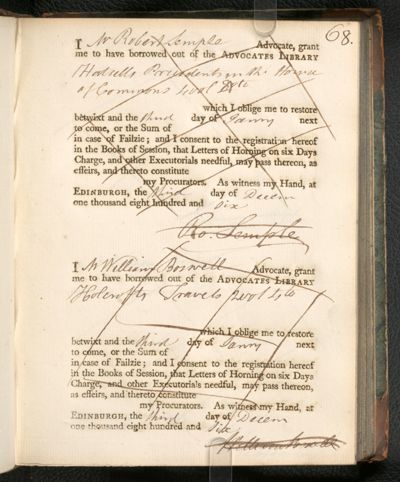 68.
I Mr Robert Semple Advocate, grant
me to have borrowed out of the ADVOCATES LIBRARY
Hatsells Precedents in the House
of Commons 4 vol 4to
which I oblige me to restore
betwixt and the third day of Janry next
to come, or the Sum of
in case of Failzie; and I consent to the registration hereof
in the Books of Session, that Letters of Horning on six Days
Charge, and other Executorials needful, may pass thereon, as
effeirs, and thereto constitute
my Procurators. As witness my Hand, at
EDINBURGH, the third day of Decem
one thousand eight hundred and Six
Ro. Semple
I Mr William Boswell Advocate, grant
me to have borrowed out of the ADVOCATES LIBRARY
Holcrofts Travels 2 vol 4to
which I oblige me to restore
betwixt and the third day of Janry next
to come, or the Sum of
in case of Failzie; and I consent to the registration hereof
in the Books of Session, that Letters of Horning on six Days
Charge, and other Executorials needful, may pass thereon,
as effeirs, and thereto constitute
my Procurators. As witness my Hand, at
EDINBURGH, the third day of Decem
one thousand eight hundred and Six
William Boswell